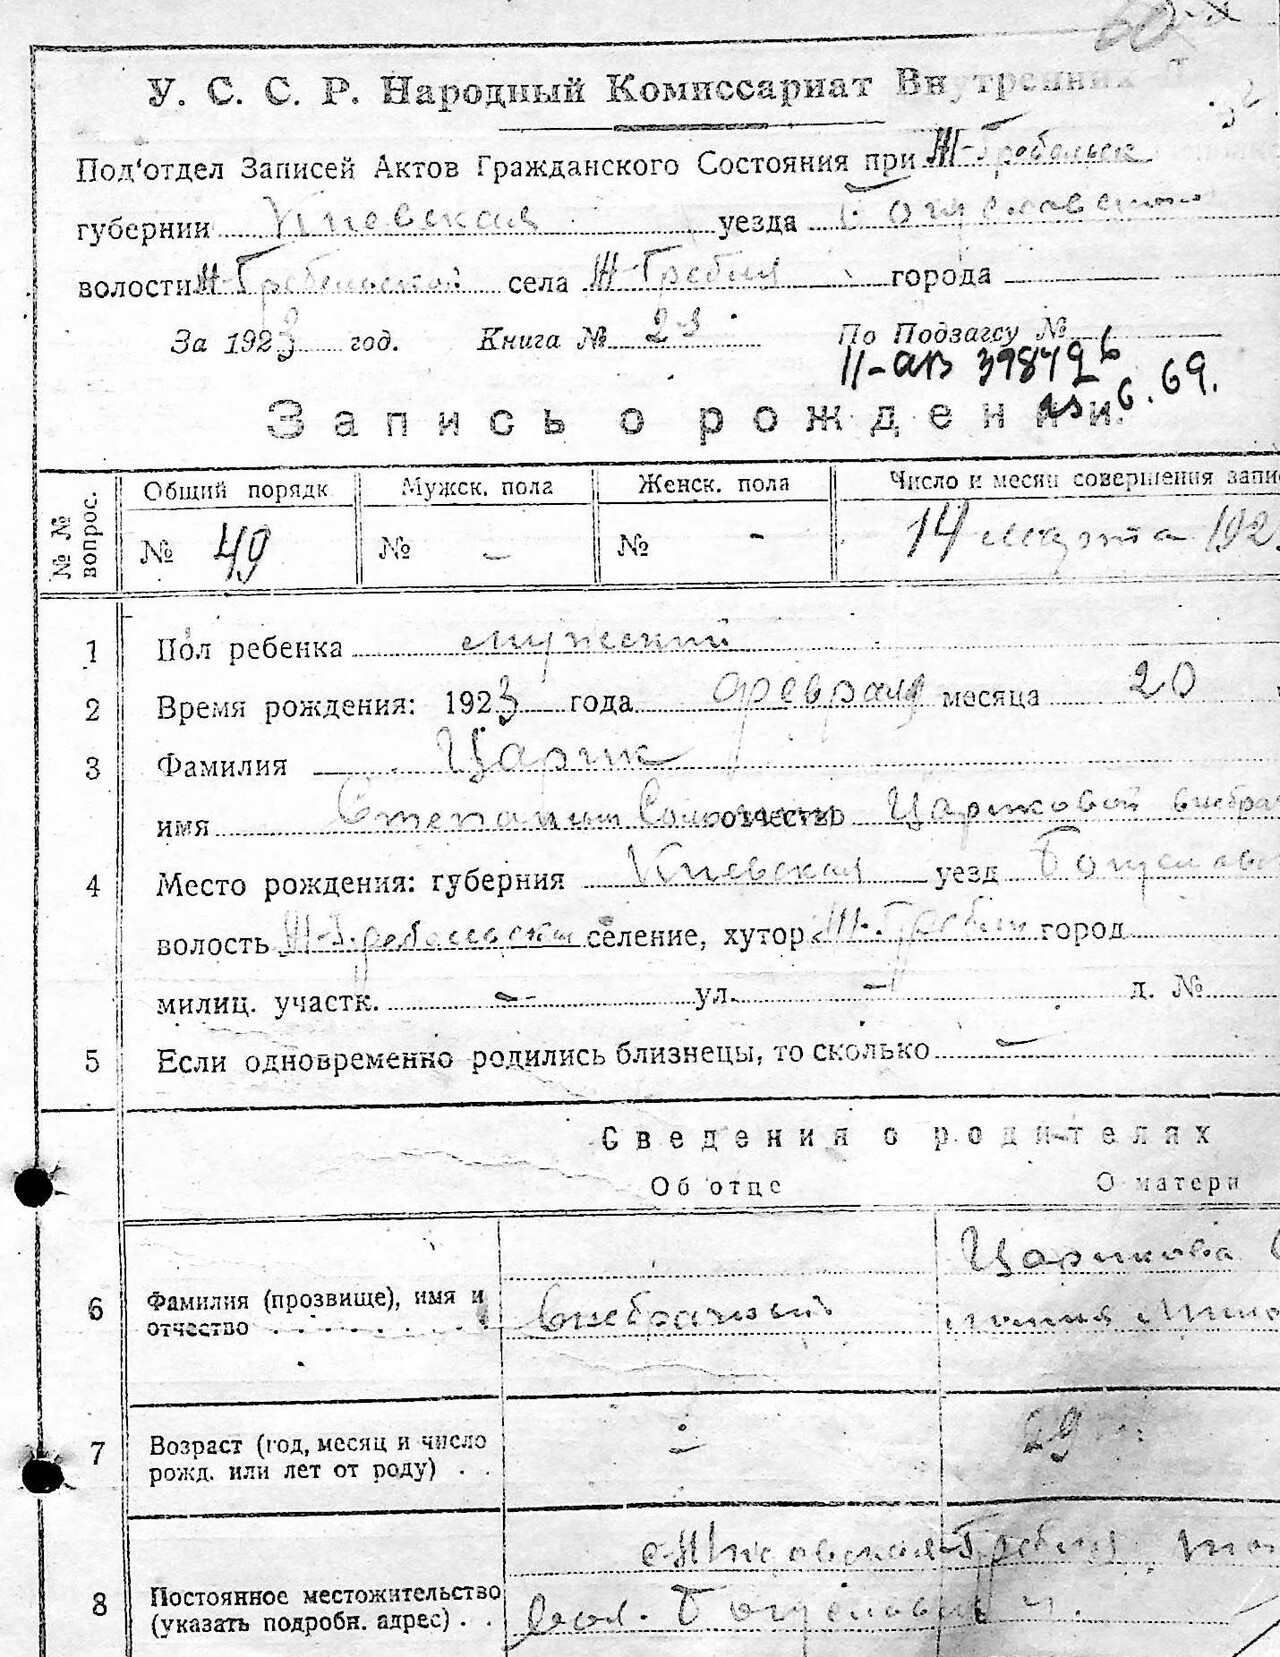 У. С. С. Р. Народный Комиссариат Внутренних
Под‘отдел Записей Актов Гражданского Состояния при М-Гребельск
губернии Киевская уезда Богуславского
волости М-Гребельской села М-Гребля города
За 1923 год. Книга № 23 По Подзагсу №
II-АВ 398426
25.6.69.
Запись о рождении.
№ № вопрос. Общий порядк. Мужск. пола Женск. пола Число и месяц совершения запи
№ 49 № - № - 14 марта 192
1 Пол ребенка мужской
2 Время рождения: 1923 года февраля месяца 20
3 Фамилия Царик
имя Степан отчество Цариковой внебра
4 Место рождения: губерния Киевская уезд Богуслав
волость М-Гребельская селение, хутор М-Гребля город
милиц. участк. - ул. - д. №
5 Если одновременно родились близнецы, то сколько -
Сведения о родителях
Об отце О матери
Царикова
6 Фамилия (прозвище), имя и
отчество внебрачный
7 Возраст (год, месяц и число
рожд. или лет от роду) - 29
Гребля
8 Постоянное местожительство
(указать подробн. адрес) вол. Богуславск у.